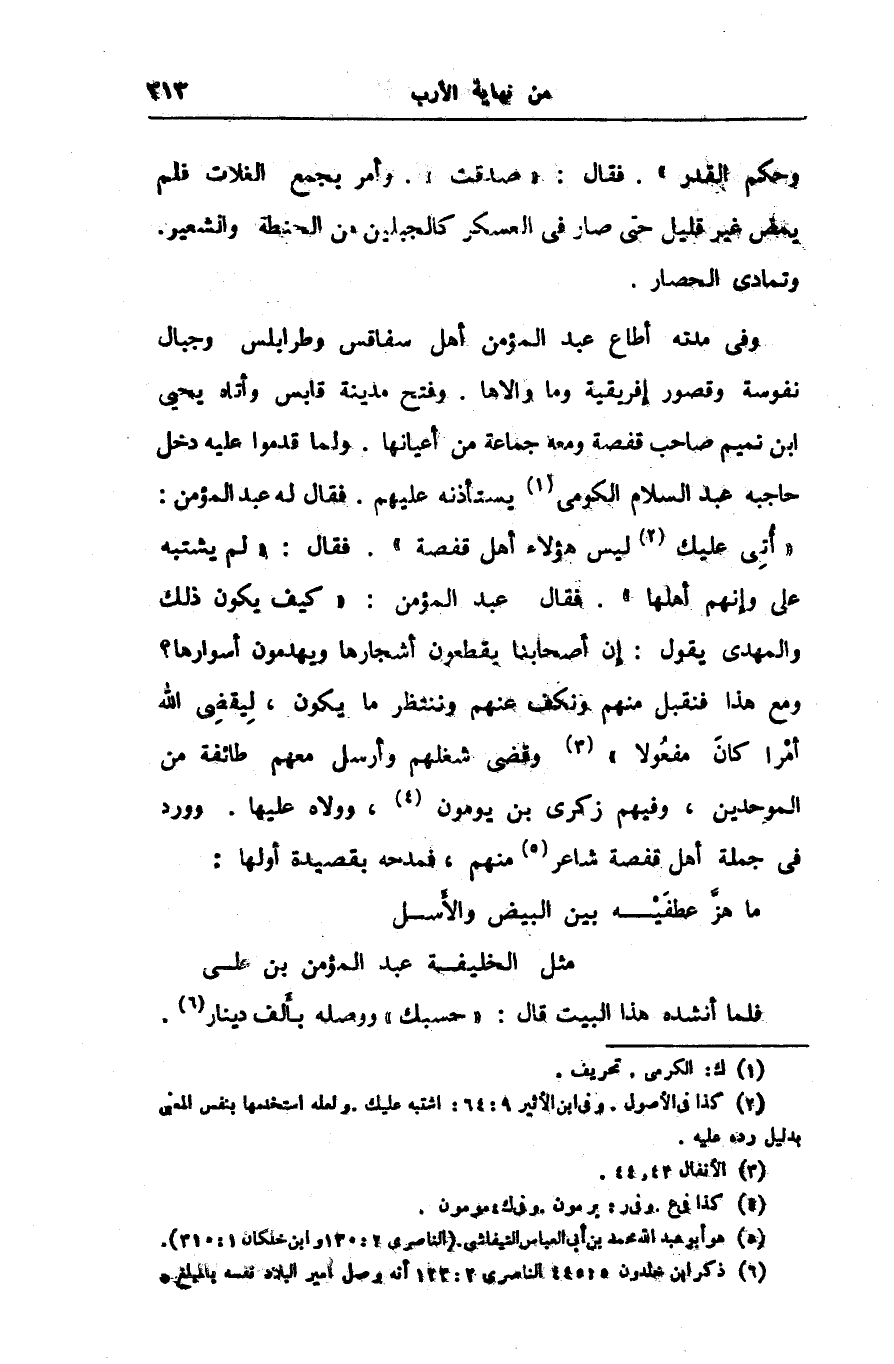 من نهاية الأرب ٣١٣
وحكم القدر » . فقال : « صدقت » . وأمر بجمع الغلات فلم
يمض غير قليل حتى صار فى العسكر كالجبلين من الحنطة والشعير.
وتمادى الحصار .
وفى مدته أطاع عبد المؤمن أهل سفاقس وطرابلس وجبال
نفوسة وقصور إفريقية وما والاها . وفتح مدينة قابس وأتاه يحيى
ابن تميم صاحب قفصة ومعه جماعة من أعيانها . ولما قدموا عليه دخل
حاجبه عبد السلام الكومى (١) يستأذنه عليهم . فقال له عبد المؤمن :
« أُتِى عليك (٢) ليس هؤلاء أهل قفصة » . فقال : « لم يشتبه
على وإنهم أهلها » . فقال عبد المؤمن : « كيف يكون ذلك
والمهدى يقول : إن أصحابنا يقطعون أشجارها ويهدمون أسوارها؟
ومع هذا فنقبل منهم ونكف عنهم وننتظر ما يكون ، لِيقضِى الله
أمْرا كانَ مفعُولا » (٣) وقضى شغلهم وأرسل معهم طائفة من
الموحدين ، وفيهم زكرى بن يومون (٤) ، وولاه عليها . وورد
فى جملة أهل قفصة شاعر (٥) منهم ، فمدحه بقصيدة أولها :
ما هزَّ عطفَيْـــه بين البيض والأَســل
مثل الخليفــة عبد المؤمن بن علــى
فلما أنشده هذا البيت قال : « حسبك » ووصله بألف دينار (٦) .
(١) ك: الكرمى . تحريف .
(٢) كذا فى الأصول . وفى ابن الأثير ٩ : ٦٤ : اشتبه عليك . ولعله استخدمها بنفس المعنى
بدليل رده عليه .
(٣) الأنفال ٤٢ , ٤٤ .
(٤) كذا فى ع . وفى ر : برمون . وفى ك : مومون .
(٥) هو أبو عبد الله محمد بن أبى العباس التيفاشى . (الناصرى ٢ : ١٣٠ و ابن خلكان ١ : ٣١٠).
(٦) ذكر ابن خلدون الناصرى ٢ : ١٢٣ أنه وصل أمير البلاد نفسه بالمبلغ .